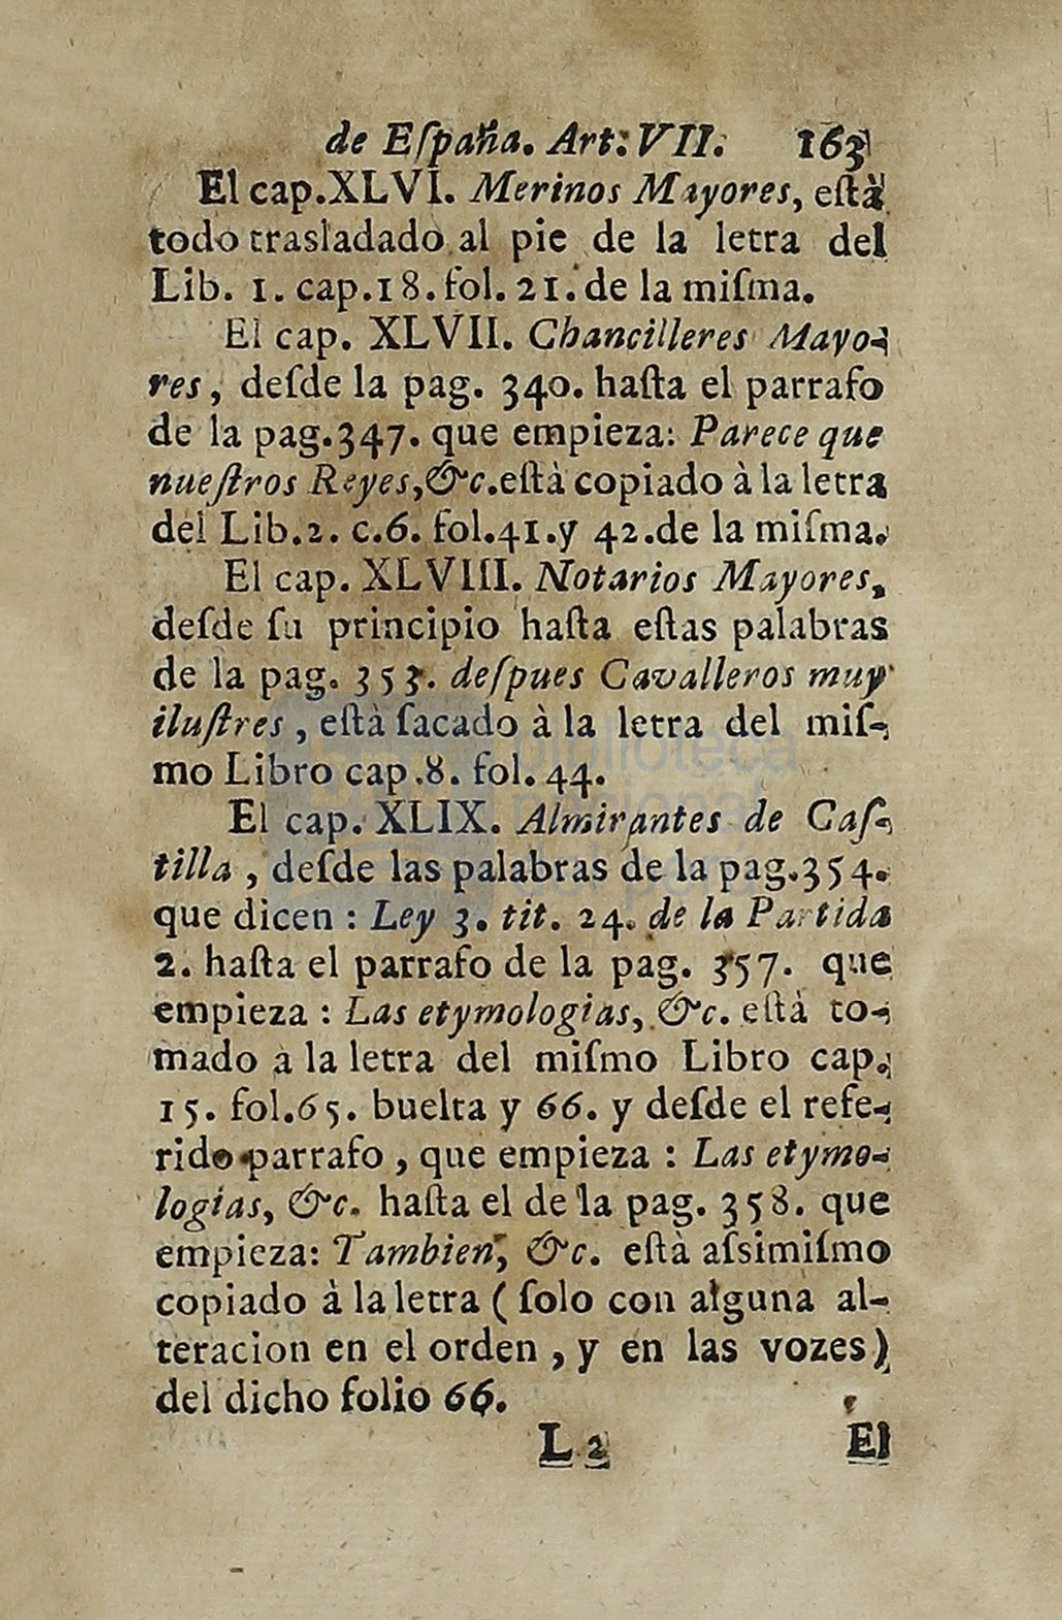 de Eſpaña. Art. VII. 163
El cap. XLVI. Merinos Mayores, eſtà
todo trasladado al pie de la letra del
Lib. 1. cap. 18. fol. 21. de la miſma.
El cap. XLVII. Chancilleres Mayo-
res, deſde la pag. 340. haſta el parrafo
de la pag. 347. que empieza: Parece que
nueſtros Reyes, &c. eſtà copiado à la letra
del Lib. 2. c. 6. fol. 41. y 42. de la miſma.
El cap. XLVIII. Notarios Mayores,
deſde ſu principio haſta eſtas palabras
de la pag. 353. deſpues Cavalleros muy
iluſtres, eſtà ſacado à la letra del miſ-
mo Libro cap. 8. fol. 44.
El cap. XLIX. Almirantes de Caſ-
tilla, deſde las palabras de la pag. 354.
que dicen: Ley 3. tit. 24. de la Partida
2. haſta el parrafo de la pag. 357. que
empieza: Las etymologias, &c. eſtà to-
mado à la letra del miſmo Libro cap.
15. fol. 65. buelta y 66. y deſde el refe-
rido parrafo, que empieza: Las etymo-
logias, &c. haſta el de la pag. 358. que
empieza: Tambien, &c. eſtà aſsimiſmo
copiado à la letra (ſolo con alguna al-
teracion en el orden, y en las vozes)
del dicho folio 66.
L 2 El
biblioteca
nacional